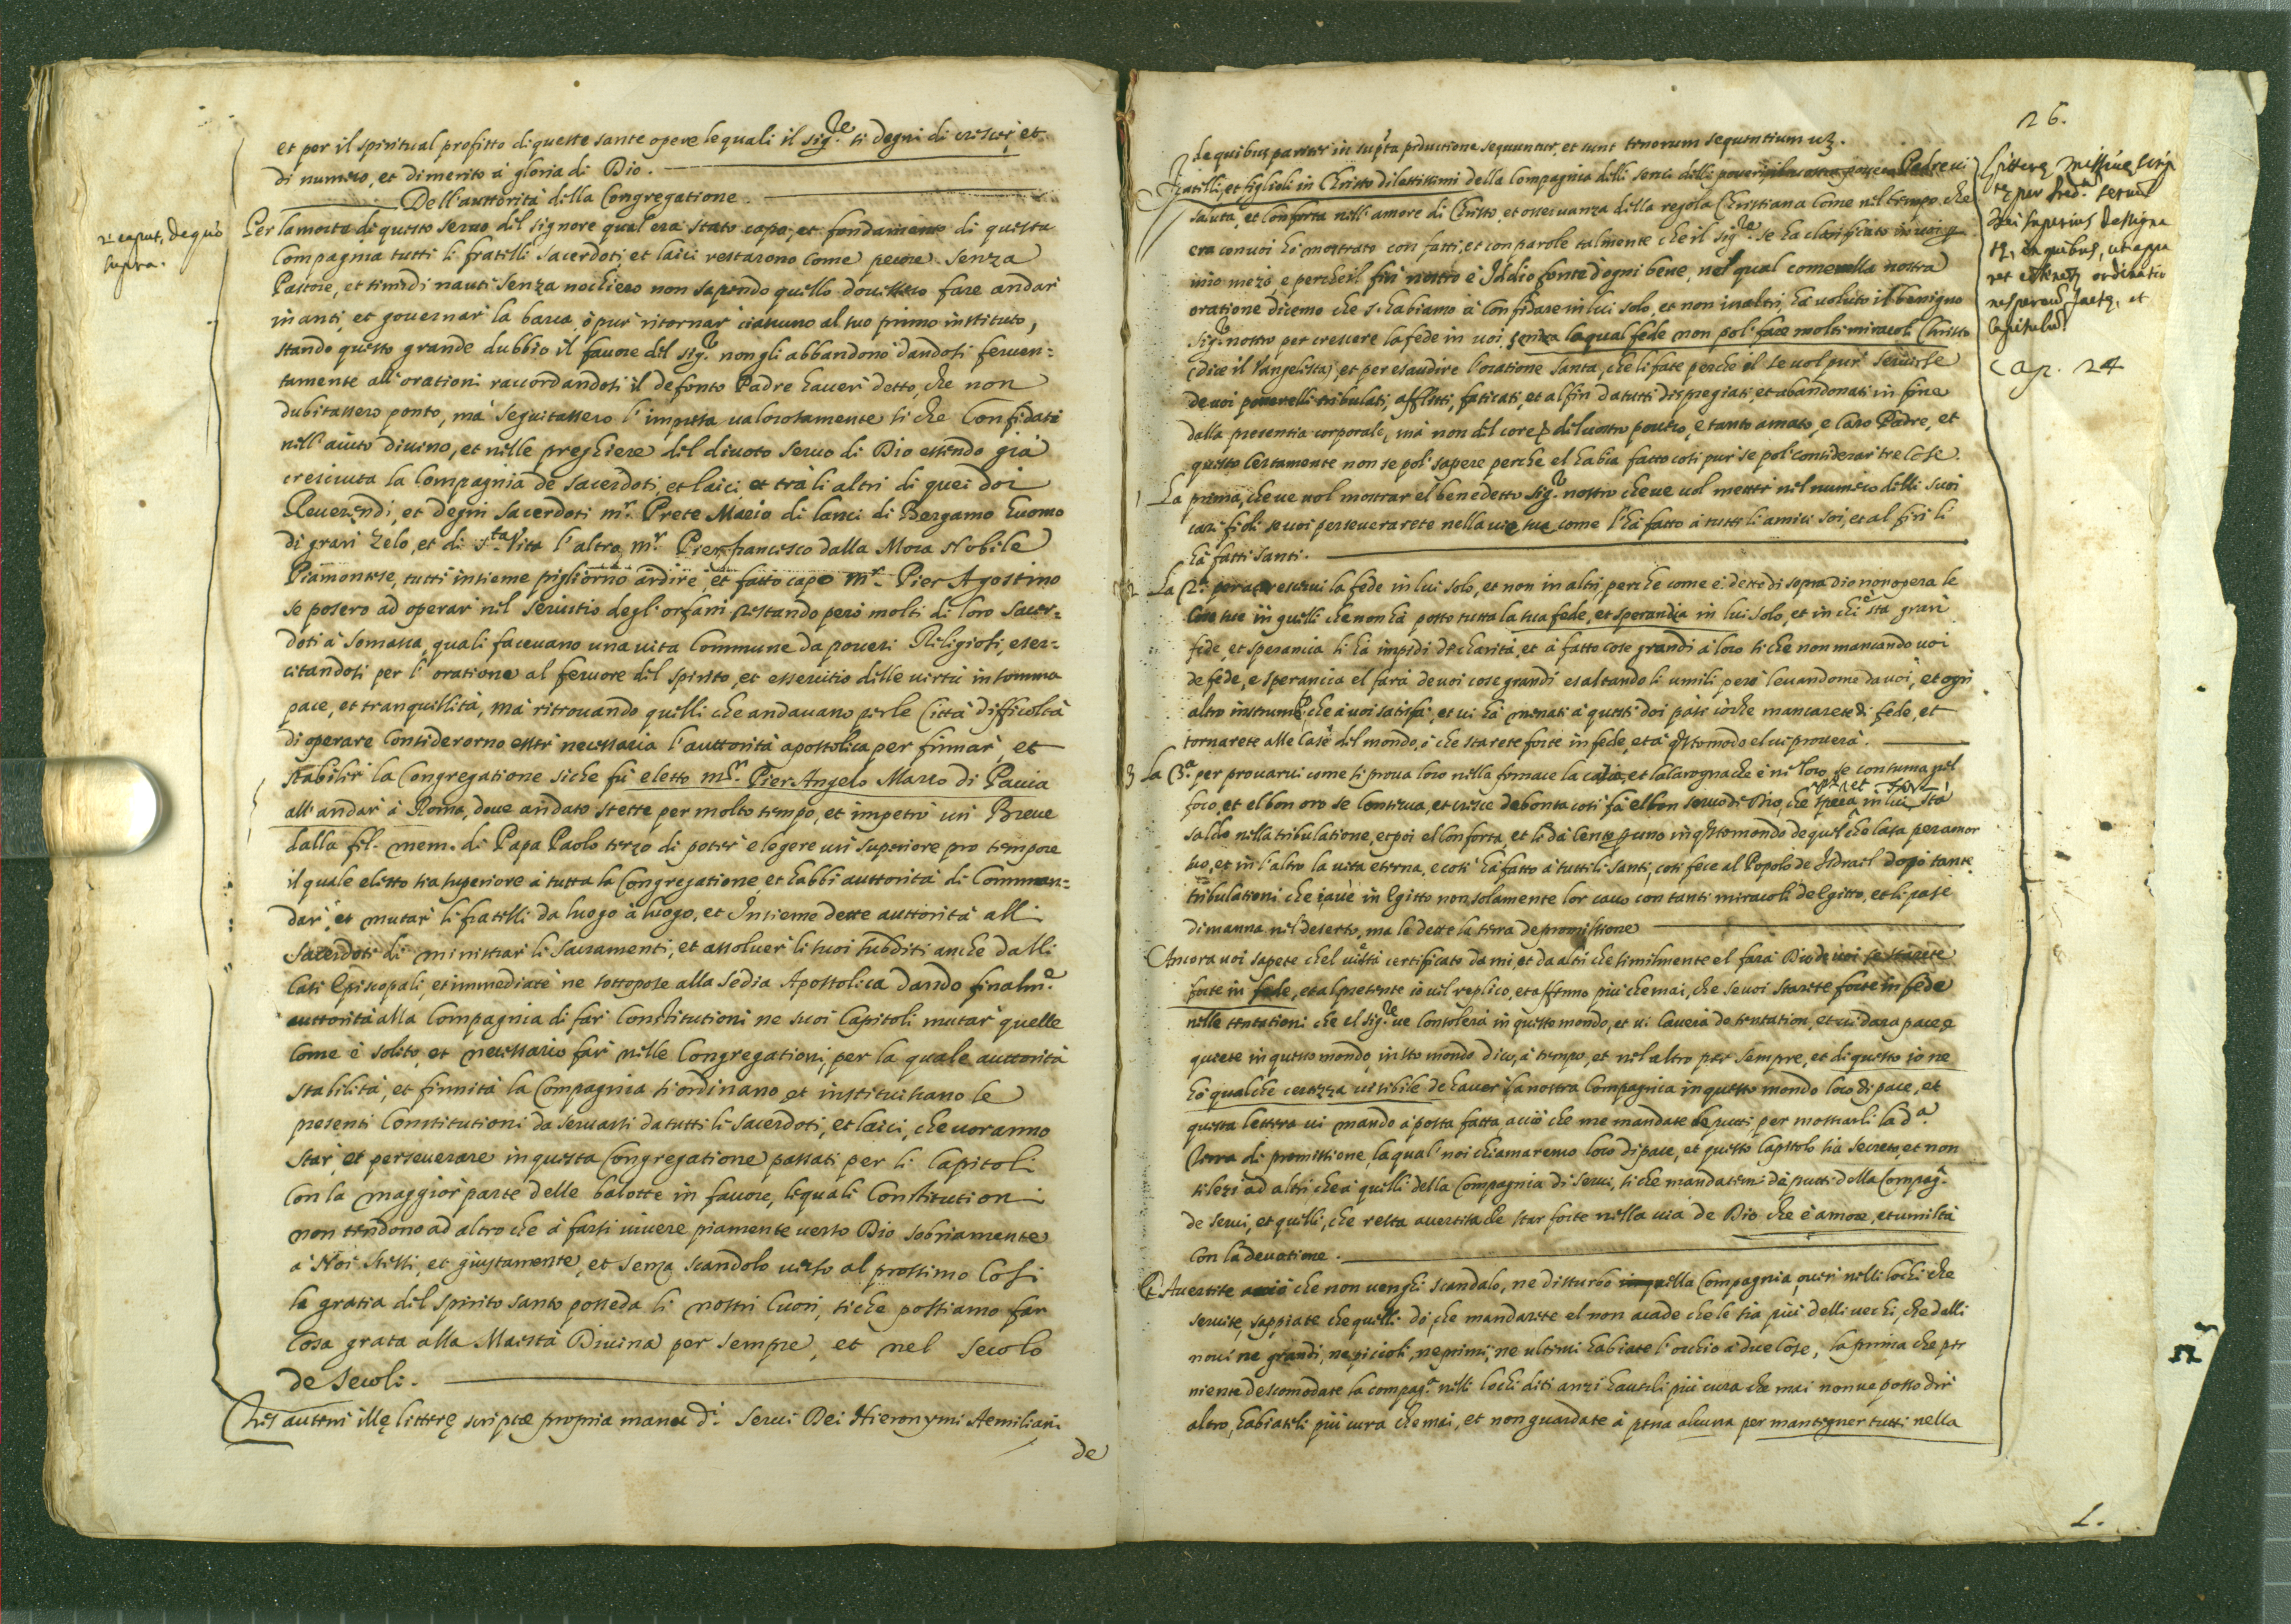 et per il spiritual profitto di queste sante opere le quali il sig.re si degni di crescer, et
di numero, et di merito à gloria di Dio.
Dell'auttorità della Congregatione
2.m caput, de quo
supra.
Per la morte di questo servo del signore qual era stato capo, et fondamento di questa
Compagnia tutti li fratelli sacerdoti, et laici restarono come pecore senza
Pastore, et timidi nauti senza nochiero non sapendo quello dovessero fare andar
inanti, et governar la barca, ò pur ritornar ciascuno al suo primo instituto,
stando questo grande dubbio il favore del sig.r non gli abbandonò dandosi ferven=
tamente all'orationi raccordandosi il defonto Padre haver detto, che non
dubitassero ponto, mà seguitassero l'impresa valorosamente si che Confidati
nell'aiuto divino, et nelle preghiere del divoto servo di Dio essendo già
cresciuta la Compagnia de sacerdoti, et laici, et trà li altri di quei doi
Reverendi, et degni sacerdoti m.r Prete Mario di lanci di Bergamo huomo
di gran zelo, et di s.ta vita l'altro m.r Pierfrancesco dalla Mora Nobile
Piamontese, tutti insieme pigliorno ardire et fatto capo m.r Pier Agostino
se posero ad operar nel servitio degl'orfani restando però molti di loro sacer=
doti à somasca, quali facevano una vita Commune da poveri Religiosi, eser=
citandosi per l'oratione al fervore del spirito, et essercitio delle virtù in somma
pace, et tranquillità, mà ritrovando quelli che andavano per le Città difficoltà
di operare Considerorno esser necessaria l'auttorità apostolica per firmar, et
stabilir la Congregatione siche fù eletto m.r Pier Angelo Marco di Pavia
all'andar à Roma, dove andato stette per molto tempo, et impetrò un Breve
dalla fel. mem. di Papa Paolo terzo di poter elegere un superiore pro tempore
il quale eletto sia superiore à tutta la Congregatione, et habbi auttorità di Comman=
dar, et mutar li fratelli da luogo à luogo, et Insieme dette auttorità alli
sacerdoti di ministrar li sacramenti, et assolver li suoi subditi anche dalli
Casi Episcopali, et immediate ne sottopose alla sedia Apostolica dando finalm.e
auttorità alla Compagnia di far Constitutioni ne suoi Capitoli mutar quelle
Come è solito, et necessario far nelle Congregationi, per la quale auttorità
stabilità, et firmità la Compagnia si ordinano, et instituiscano le
presenti Constitutioni da servarsi da tutti li sacerdoti, et laici, che voranno
star, et perseverare in questa Congregatione passati per li Capitoli
Con la maggior parte delle balotte in favore, le quali Constitutioni
non tendono ad altro che à farsi vivere piamente verso Dio sobriamente
à Noi stessi, et giustamente, et senza scandolo verso al prossimo Cosi
la gratia del spirito santo posseda li nostri Cuori, siche possiamo far
Cosa grata alla Maestà Divina per sempre, et nel secolo
de secoli.
His autem illę litterę scriptae propria manu d.i servi Dei Hieronymi Aemiliani
de
26.
de quibus pariter in sup.ta productione sequuntur, et sunt tenorum sequentium uz.
Fratelli, et figlioli in Christo dilettissimi della Compagnia delli servi delli poveri Padre vi
saluta, et Conforta nell'amore di Christo, et osservanza della regola Christiana Come nel tempo che
era con voi hà mostrato con fatti, et con parole talmente che il sig.re se ha clarificato in voi p
mio mezo e perche il fin nostro è Iddio fonte d'ogni bene, nel qual come nella nostra
oratione dicemo che s'habiamo à Confidare in lui solo, et non in altri, hà voluto il benigno
sig.r nostro per crescere la fede in voi, senza la qual fede non pol fare molti miracoli Christo
(dice il Vangelista) et per esaudire l'oratione santa, che li fate perche el se vol pur servirse
de voi poverelli tribulati, afflitti, faticati, et al fin da tutti dispregiati, et abandonati in fine
dalla presentia corporale, mà non del core, del vostro povero, e tanto amato, e Caro Padre, et
questo Certamente non se pol sapere perche el habia fatto cosi pur se pol considerar tre Cose.
1 La prima, che ve vol mostrar el benedetto sig.r nostro che ve vol metter nel numero delli suoi
cari fioli se voi perseverarete nella vie sue come l'hà fatto à tutti li amici soi, et al fin li
hà fatti santi.
2 La 2.a per acrescervi la fede in lui solo, et non in altri, perche come è dette di sopra dio non opera le
Cose sue in quelli che non hà posto tutta la sua fede, et sperandia in lui solo, et in chi è sta gran
fede, et sperancia li hà impidi de charità, et à fatto cose grandi à loro si che non mancando voi
de fede, e sperancia el farà de voi cose grandi esaltando li umili però levandome da voi, et ogni
altro instrum.to che à voi satisfà, et vi hà menati à questi doi pasi, ò che mancarete di fede, et
tornarete alle Case del mondo, ò che starete forte in fede, et à q.sto modo el vi proverà.
3 La 3.a per provarvi come si prova loro nella fornace la et la carogna che è ne loro, se consuma nel
foco, et el bon oro se Conserva, et cresce de bonta cosi fà el bon servo di Dio, che spera in lui, sta
saldo nella tribulatione, et poi el Conforta, et li dà cento per uno in q.sto mondo de quel che lassa per amor
suo, et in l'altro la vita eterna, e cosi hà fatto à tutti li santi, cosi fece al Popolo de Isdrael dopò tante
tribulationi che l'ave in Egitto non solamente lor cavò con tanti miracoli de Egitto, et li pasè
di manna nel deserto, ma le dette la terra de promissione
Ancora voi sapete chel vi è stà certificato da mi, et da altri che similmente el farà Dio de voi se starete
forte in fede, et al presente io vel replico, et affermo più che mai, che se voi starete forte in fede
nelle tentationi che el sig.re ve Consolerà in questo mondo, et vi Caverà de tentation, et vi darà pace, e
quiete in questo mondo, in sto mondo dico, à tempo, et nel altro per sempre, et di questo io ne
hò qualche certezza visibile de haver la nostra Compagnia in questo mondo loco di pace, et
questa lettera vi mando à posta fatta acciò che me mandate de putti per mostrarli la d.a
Terra di promissione, la qual noi chiamaremo loco di pace, et questo Capitolo sia secreto, et non
si lezi ad altri che à quelli della Compagnia di servi, si che mandatemi de putti della Compag.a
de servi, et quelli, che resta avertischa de star forte nella via de Dio che è amore, et umiltà
Con la devotione.
Et Avertite acciò che non venghi scandalo, ne disturbo nella Compagnia, over nelli lochi che
servite, sappiate che quelli di che mandarete el non acade che le sia più delli vechi, che dalli
novi ne grandi, ne piccioli, ne primi, ne ultimi habiate l'occhio à due Cose, la prima che per
niente descomodate la compag.a nelli lochi diti anzi hauteli più cura che mai non ve posso dir
altro, habiateli più cura che mai, et non guardate à pena alcuna per mantegner tutti nella
Litterę missivę scrip
tę per pred.m servum
Dei superius designa
tę, in quibus, ut appa
ret
Capitulum
Cap. 24
L.